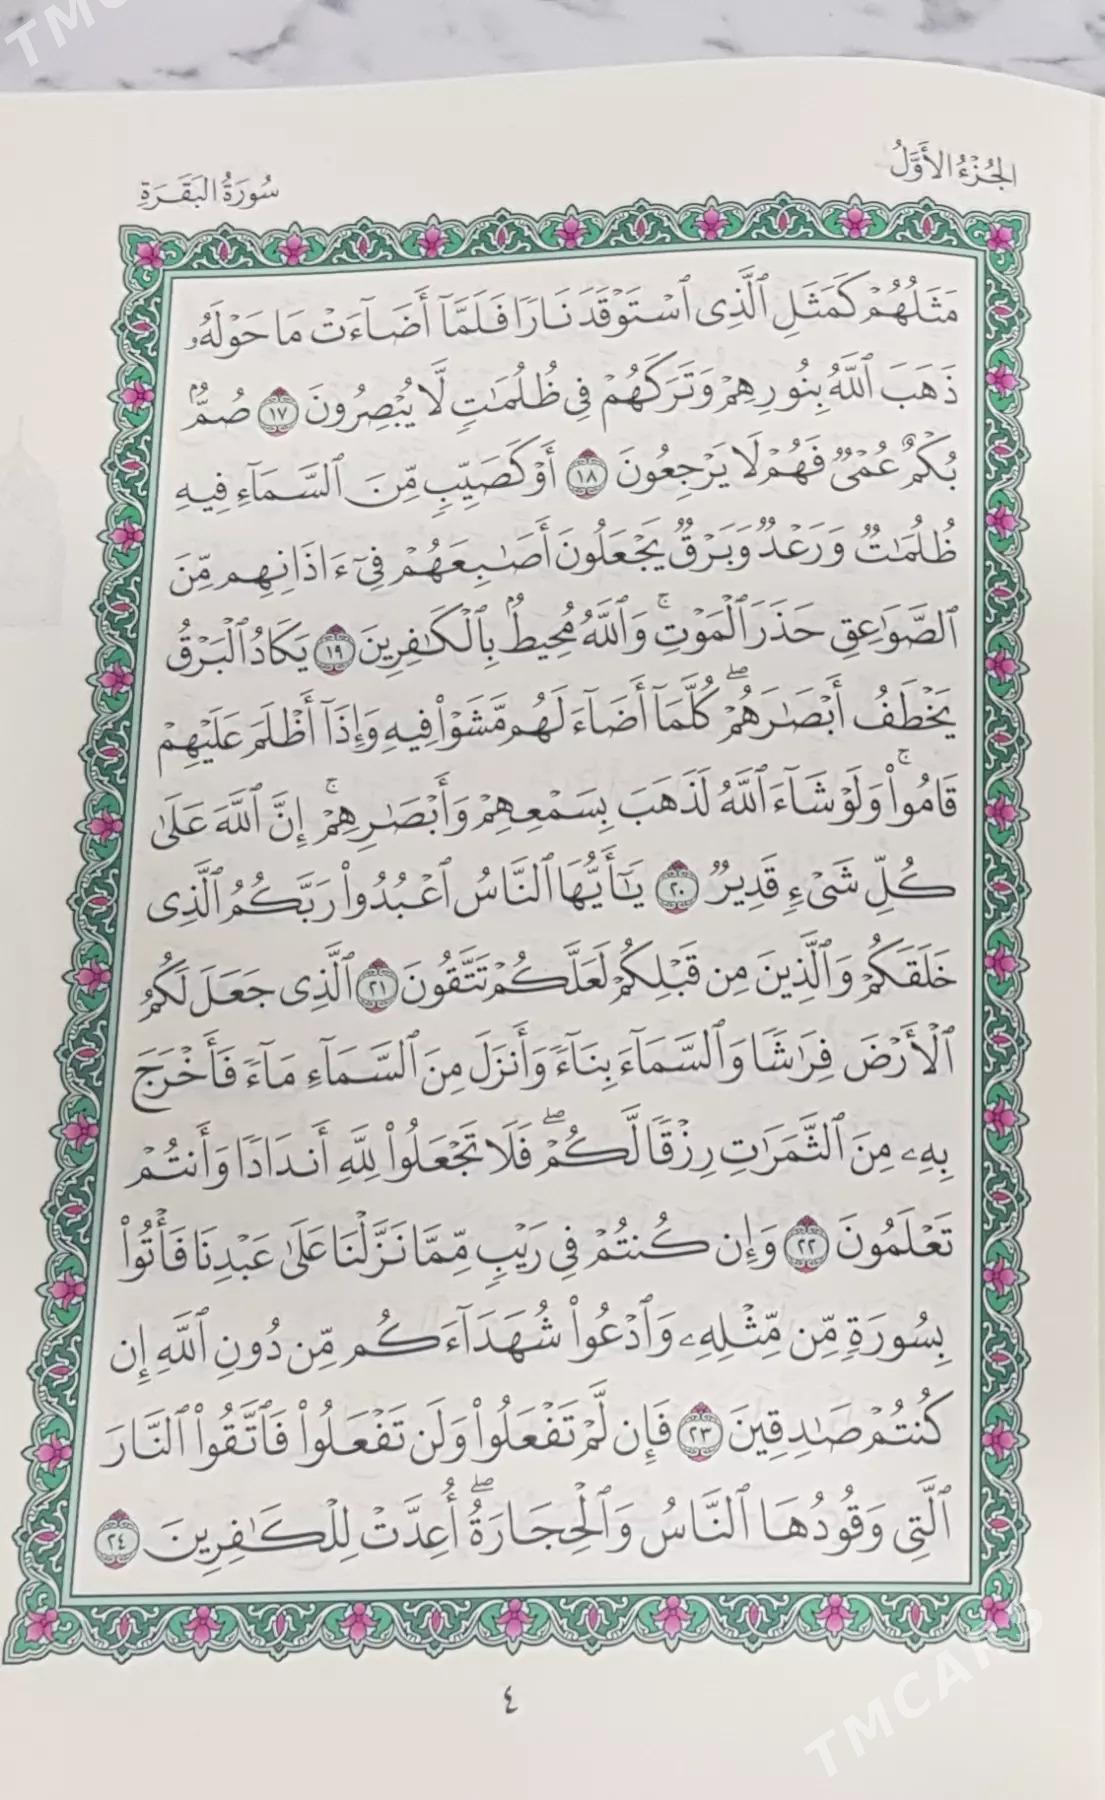 TMCARS
الجُزْءُ الأَوَّلُ
سُورَةُ البَقَرَةِ
مَثَلُهُمْ كَمَثَلِ ٱلَّذِى ٱسْتَوْقَدَ نَارًا فَلَمَّآ أَضَآءَتْ مَا حَوْلَهُۥ
ذَهَبَ ٱللَّهُ بِنُورِهِمْ وَتَرَكَهُمْ فِى ظُلُمَٰتٍ لَّا يُبْصِرُونَ ١٧ صُمٌّۢ
بُكْمٌ عُمْىٌ فَهُمْ لَا يَرْجِعُونَ ١٨ أَوْ كَصَيِّبٍ مِّنَ ٱلسَّمَآءِ فِيهِ
ظُلُمَٰتٌ وَرَعْدٌ وَبَرْقٌ يَجْعَلُونَ أَصَٰبِعَهُمْ فِىٓ ءَاذَانِهِم مِّنَ
ٱلصَّوَٰعِقِ حَذَرَ ٱلْمَوْتِ ۚ وَٱللَّهُ مُحِيطٌۢ بِٱلْكَٰفِرِينَ ١٩ يَكَادُ ٱلْبَرْقُ
يَخْطَفُ أَبْصَٰرَهُمْ ۖ كُلَّمَآ أَضَآءَ لَهُم مَّشَوْا۟ فِيهِ وَإِذَآ أَظْلَمَ عَلَيْهِمْ
قَامُوا۟ ۚ وَلَوْ شَآءَ ٱللَّهُ لَذَهَبَ بِسَمْعِهِمْ وَأَبْصَٰرِهِمْ ۚ إِنَّ ٱللَّهَ عَلَىٰ
كُلِّ شَىْءٍ قَدِيرٌ ٢٠ يَٰٓأَيُّهَا ٱلنَّاسُ ٱعْبُدُوا۟ رَبَّكُمُ ٱلَّذِى
خَلَقَكُمْ وَٱلَّذِينَ مِن قَبْلِكُمْ لَعَلَّكُمْ تَتَّقُونَ ٢١ ٱلَّذِى جَعَلَ لَكُمُ
ٱلْأَرْضَ فِرَٰشًا وَٱلسَّمَآءَ بِنَآءً وَأَنزَلَ مِنَ ٱلسَّمَآءِ مَآءً فَأَخْرَجَ
بِهِۦ مِنَ ٱلثَّمَرَٰتِ رِزْقًا لَّكُمْ ۖ فَلَا تَجْعَلُوا۟ لِلَّهِ أَندَادًا وَأَنتُمْ
تَعْلَمُونَ ٢٢ وَإِن كُنتُمْ فِى رَيْبٍ مِّمَّا نَزَّلْنَا عَلَىٰ عَبْدِنَا فَأْتُوا۟
بِسُورَةٍ مِّن مِّثْلِهِۦ وَٱدْعُوا۟ شُهَدَآءَكُم مِّن دُونِ ٱللَّهِ إِن
كُنتُمْ صَٰدِقِينَ ٢٣ فَإِن لَّمْ تَفْعَلُوا۟ وَلَن تَفْعَلُوا۟ فَٱتَّقُوا۟ ٱلنَّارَ
ٱلَّتِى وَقُودُهَا ٱلنَّاسُ وَٱلْحِجَارَةُ ۖ أُعِدَّتْ لِلْكَٰفِرِينَ ٢٤
٤